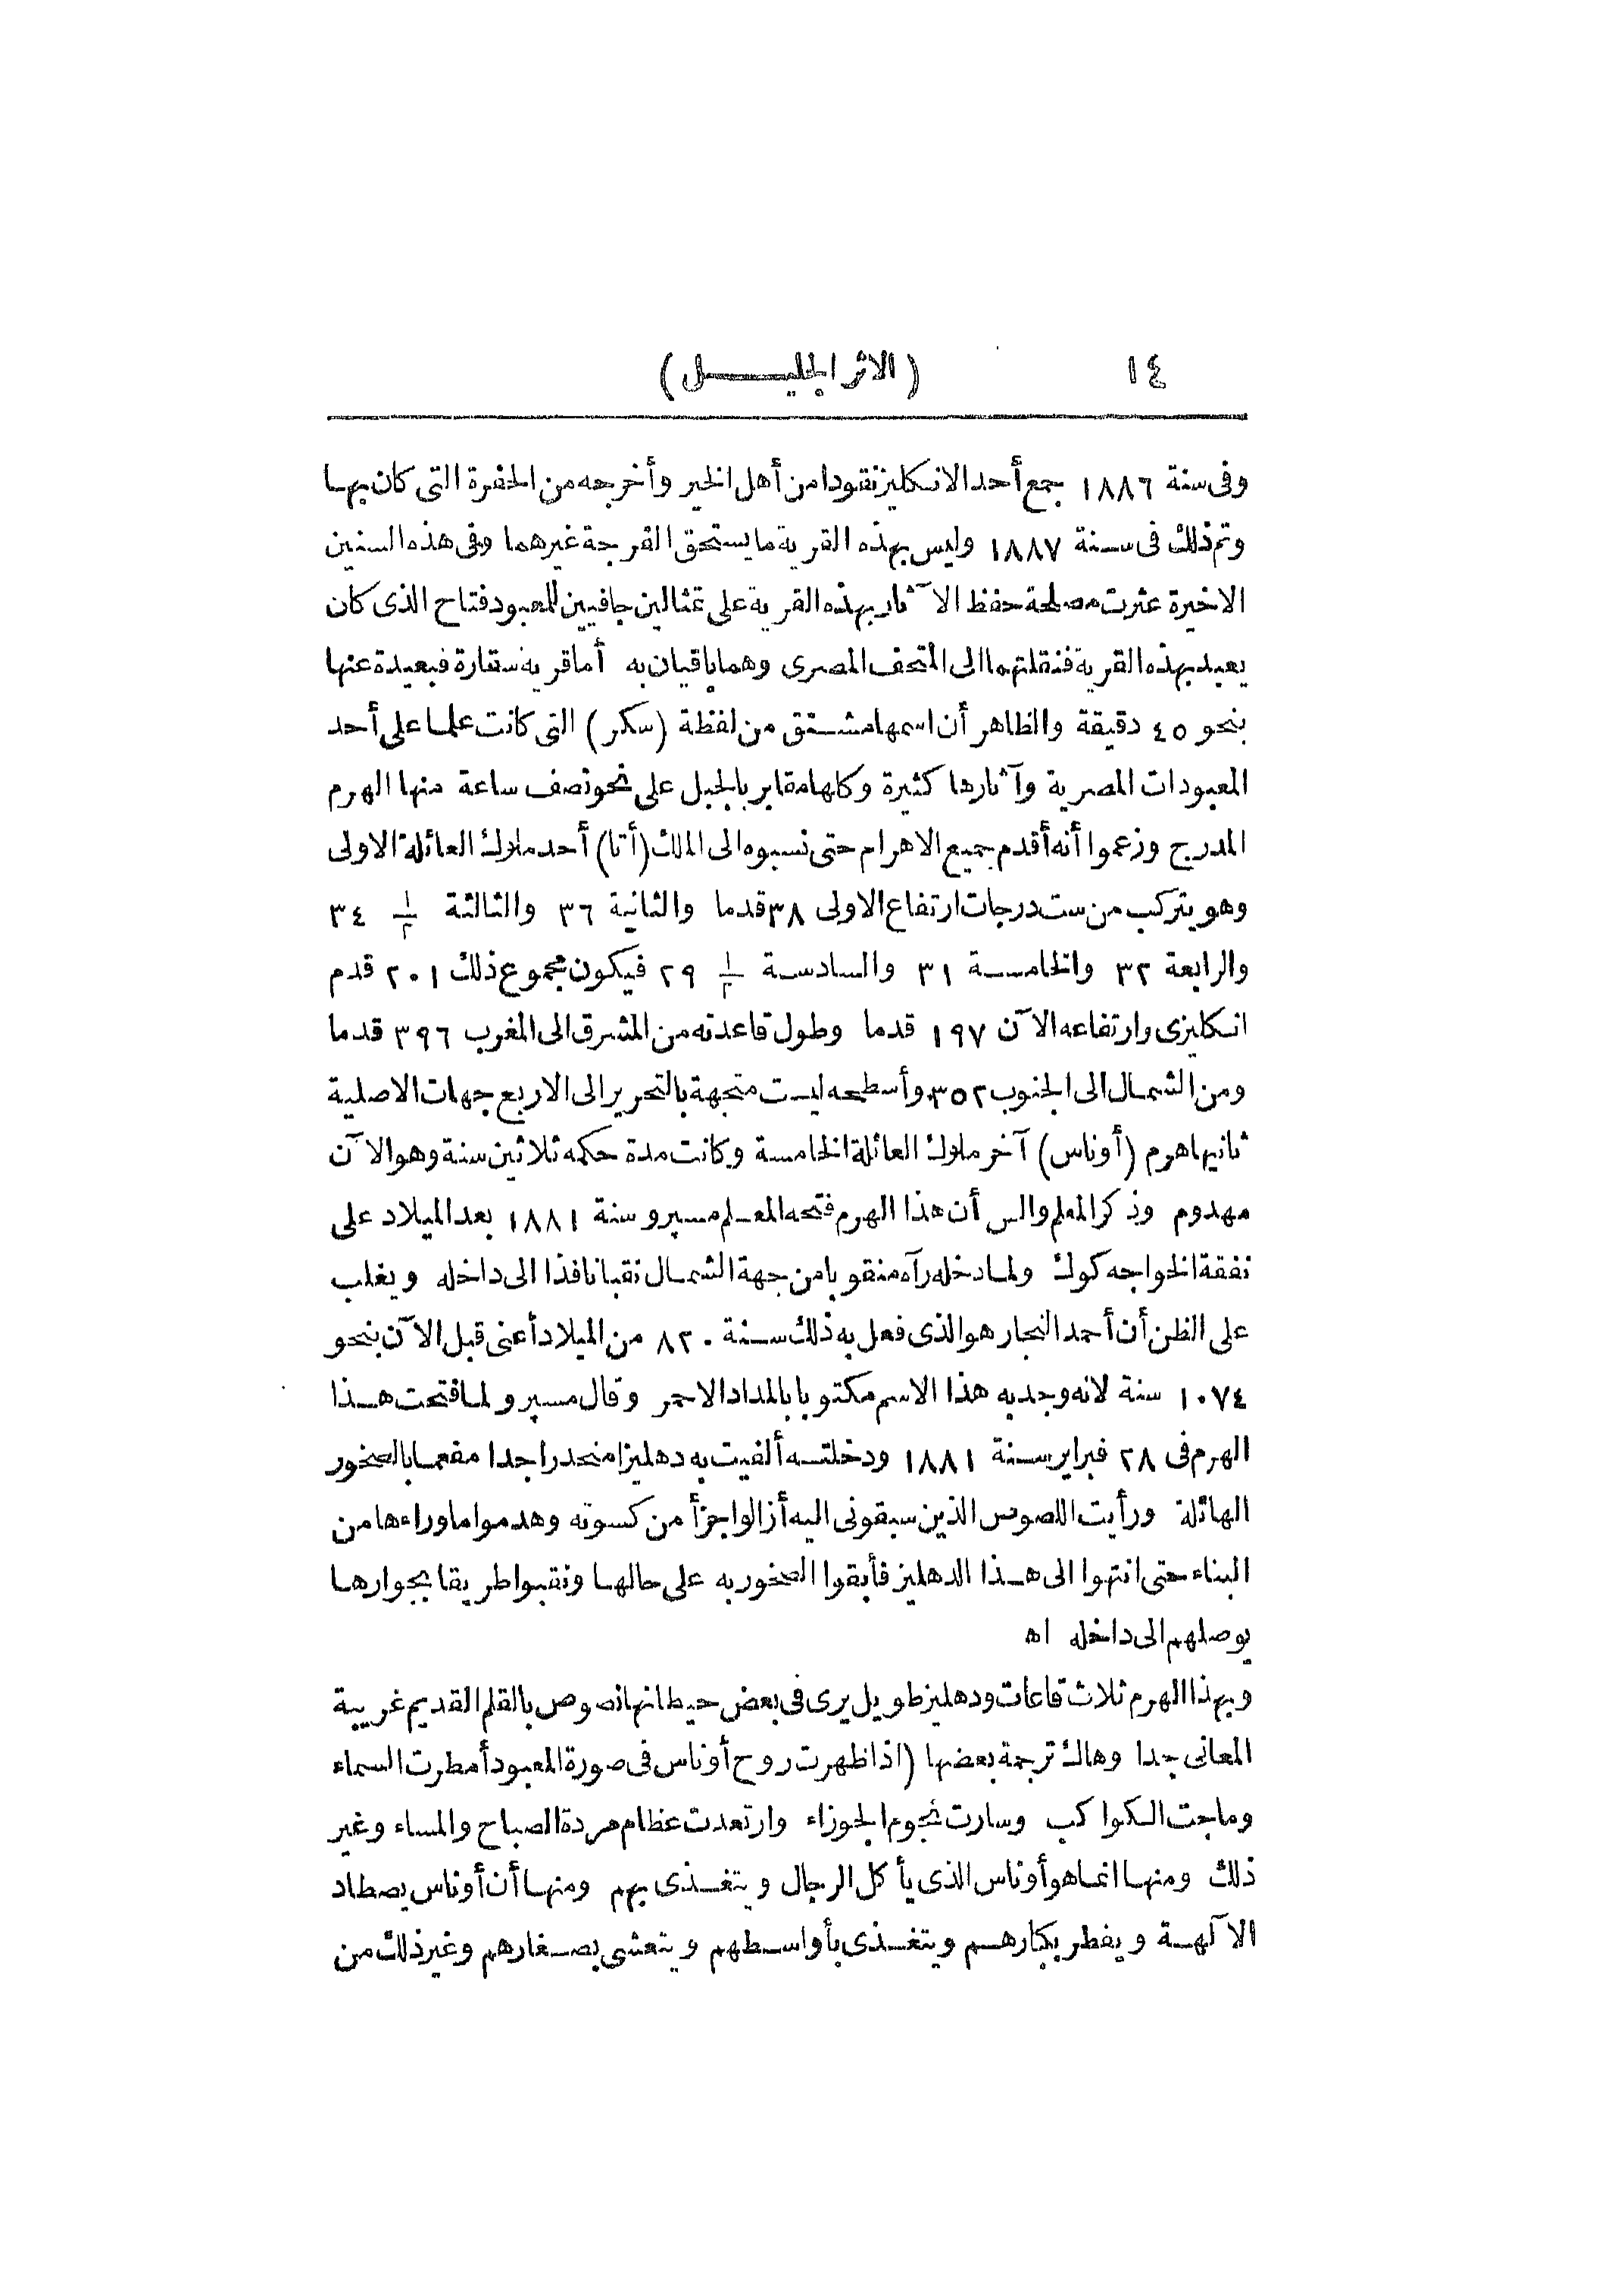 ١٤ (الاثر الجليل)
وفى سنة ١٨٨٦ جمع أحد الانكليز نقودا من أهل الخير وأخرجه من الحفرة التى كان بها
وتم ذلك فى سنة ١٨٨٧ وليس بهذه القرية ما يستحق الفرجة غيرهما وفى هذه السنين
الاخيرة عثرت مصلحة حفظ الا ثار بهذه القرية على تمثالين جافيين للمعبود فتاح الذى كان
يعبد بهذه القرية فنقلتهما الى المتحف المصرى وهما باقيان به أما قرية سقارة فبعيدة عنها
بنحو ٤٥ دقيقة والظاهر أن اسمها مشتق من لفظة (سكر) التى كانت علما على أحد
المعبودات المصرية وآثارها كثيرة وكلها مقابر بالجبل على نحو نصف ساعة منها الهرم
المدرج وزعموا أنه أقدم جميع الاهرام حتى نسبوه الى الملك (أتا) أحد ملوك العائلة الاولى
وهو يتركب من ست درجات ارتفاع الاولى ٣٨ قدما والثانية ٣٦ والثالثة ١/٢ ٣٤
والرابعة ٣٢ والخامسة ٣١ والسادسة ١/٢ ٢٩ فيكون مجموع ذلك ٢٠١ قدم
انكليزى وارتفاعه الآن ١٩٧ قدما وطول قاعدته من المشرق الى المغرب ٣٩٦ قدما
ومن الشمال الى الجنوب ٣٥٢ وأسطحه ليست متجهة بالتحرير الى الاربع جهات الاصلية
ثانيها هرم (أوناس) آخر ملوك العائلة الخامسة وكانت مدة حكمه ثلاثين سنة وهو الآن
مهدوم وذكر المعلم والس أن هذا الهرم فتحه المعلم مسپرو سنة ١٨٨١ بعد الميلاد على
نفقة الخواجه كوك ولما دخله رآه منقوبا من جهة الشمال نقبا نافذا الى داخله ويغلب
على الظن أن أحمد النجار هو الذى فعل به ذلك سنة ٨٢٠ من الميلاد أعنى قبل الآن بنحو
١٠٧٤ سنة لانه وجد به هذا الاسم مكتوبا بالمداد الاحمر وقال مسپرو لما فتحت هذا
الهرم فى ٢٨ فبراير سنة ١٨٨١ ودخلته ألفيت به دهليزا منحدرا جدا مفعما بالصخور
الهائلة ورأيت اللصوص الذين سبقونى اليه أزالوا جزأ من كسوته وهدموا ما وراءها من
البناء حتى انتهوا الى هذا الدهليز فأبقوا الصخور به على حالها ونقبوا طريقا بجوارها
يوصلهم الى داخله اه
وبهذا الهرم ثلاث قاعات ودهليز طويل يرى فى بعض حيطانها نصوص بالقلم القديم غريبة
المعانى جدا وهاك ترجمة بعضها (اذا ظهرت روح أوناس فى صورة المعبود أمطرت السماء
وماجت الكواكب وسارت نجوم الجوزاء وارتعدت عظام مردة الصباح والمساء وغير
ذلك ومنها انما هو أوناس الذى يأكل الرجال ويتغذى بهم ومنها أن أوناس يصطاد
الآلهة ويفطر بكبارهم ويتغذى بأواسطهم ويتعشى بصغارهم وغير ذلك من